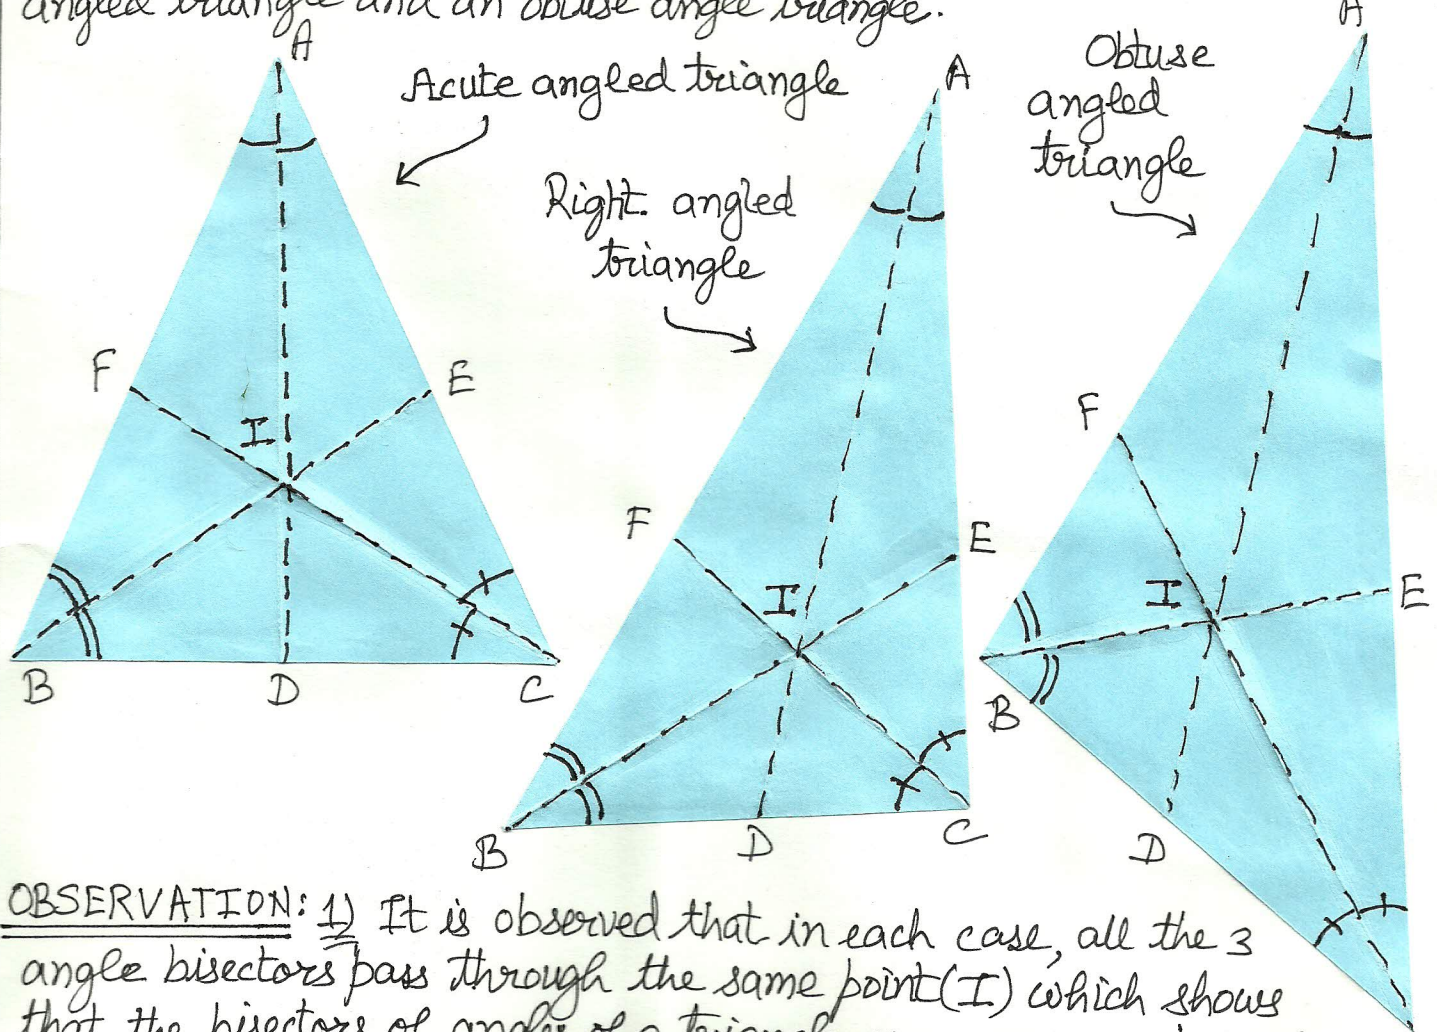 angled triangle and an obtuse angle triangle.
A
Acute angled triangle
F
E
I
B
D
C
A
Right. angled
triangle
F
E
I
B
D
C
A
Obtuse
angled
triangle
F
E
I
B
D
OBSERVATION: 1) It is observed that in each case, all the 3
angle bisectors pass through the same point (I) which shows
that the bisectors of angles of a